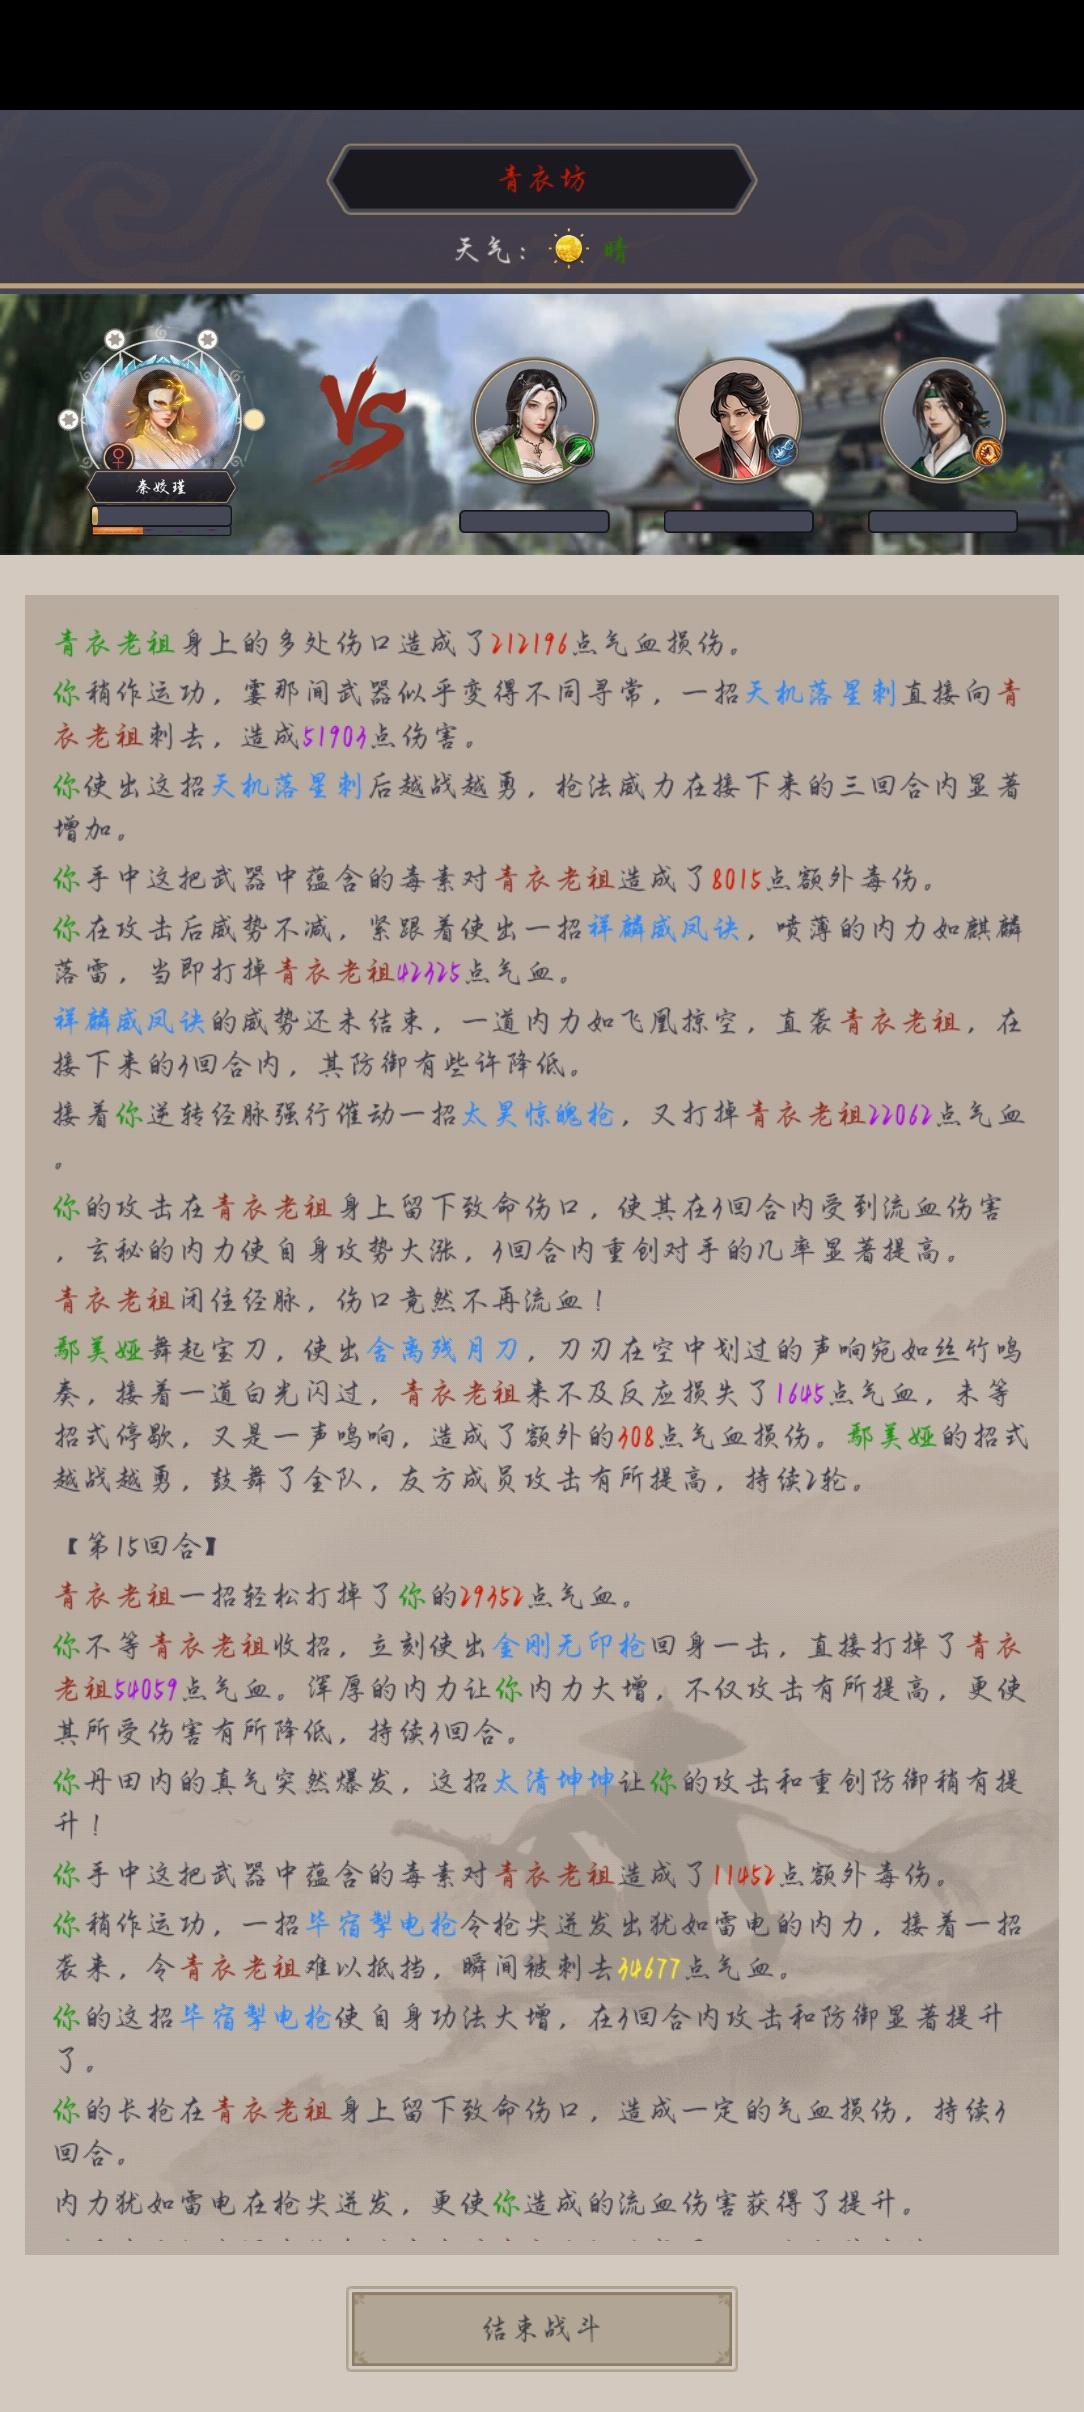 青衣坊
天气: 晴
VS
秦姣瑾
青衣老祖身上的多处伤口造成了212196点气血损伤。
你稍作运功，霎那间武器似乎变得不同寻常，一招天机落星刺直接向青
衣老祖刺去，造成51903点伤害。
你使出这招天机落星刺后越战越勇，枪法威力在接下来的三回合内显著
增加。
你手中这把武器中蕴含的毒素对青衣老祖造成了8015点额外毒伤。
你在攻击后威势不减，紧跟着使出一招祥麟威凤诀，喷薄的内力如麒麟
落雷，当即打掉青衣老祖42325点气血。
祥麟威凤诀的威势还未结束，一道内力如飞凰掠空，直袭青衣老祖，在
接下来的3回合内，其防御有些许降低。
接着你逆转经脉强行催动一招太昊惊魄枪，又打掉青衣老祖22062点气血
。
你的攻击在青衣老祖身上留下致命伤口，使其在3回合内受到流血伤害
，玄秘的内力使自身攻势大涨，3回合内重创对手的几率显著提高。
青衣老祖闭住经脉，伤口竟然不再流血！
鄢美娅舞起宝刀，使出含离残月刀，刀刃在空中划过的声响宛如丝竹鸣
奏，接着一道白光闪过，青衣老祖来不及反应损失了1645点气血，未等
招式停歇，又是一声鸣响，造成了额外的308点气血损伤。鄢美娅的招式
越战越勇，鼓舞了全队，友方成员攻击有所提高，持续2轮。
【第15回合】
青衣老祖一招轻松打掉了你的29352点气血。
你不等青衣老祖收招，立刻使出金刚无印枪回身一击，直接打掉了青衣
老祖54059点气血。浑厚的内力让你内力大增，不仅攻击有所提高，更使
其所受伤害有所降低，持续3回合。
你丹田内的真气突然爆发，这招太清坤坤让你的攻击和重创防御稍有提
升！
你手中这把武器中蕴含的毒素对青衣老祖造成了11452点额外毒伤。
你稍作运功，一招毕宿掣电枪令枪尖迸发出犹如雷电的内力，接着一招
袭来，令青衣老祖难以抵挡，瞬间被刺去34677点气血。
你的这招毕宿掣电枪使自身功法大增，在3回合内攻击和防御显著提升
了。
你的长枪在青衣老祖身上留下致命伤口，造成一定的气血损伤，持续3
回合。
内力犹如雷电在枪尖迸发，更使你造成的流血伤害获得了提升。
结束战斗